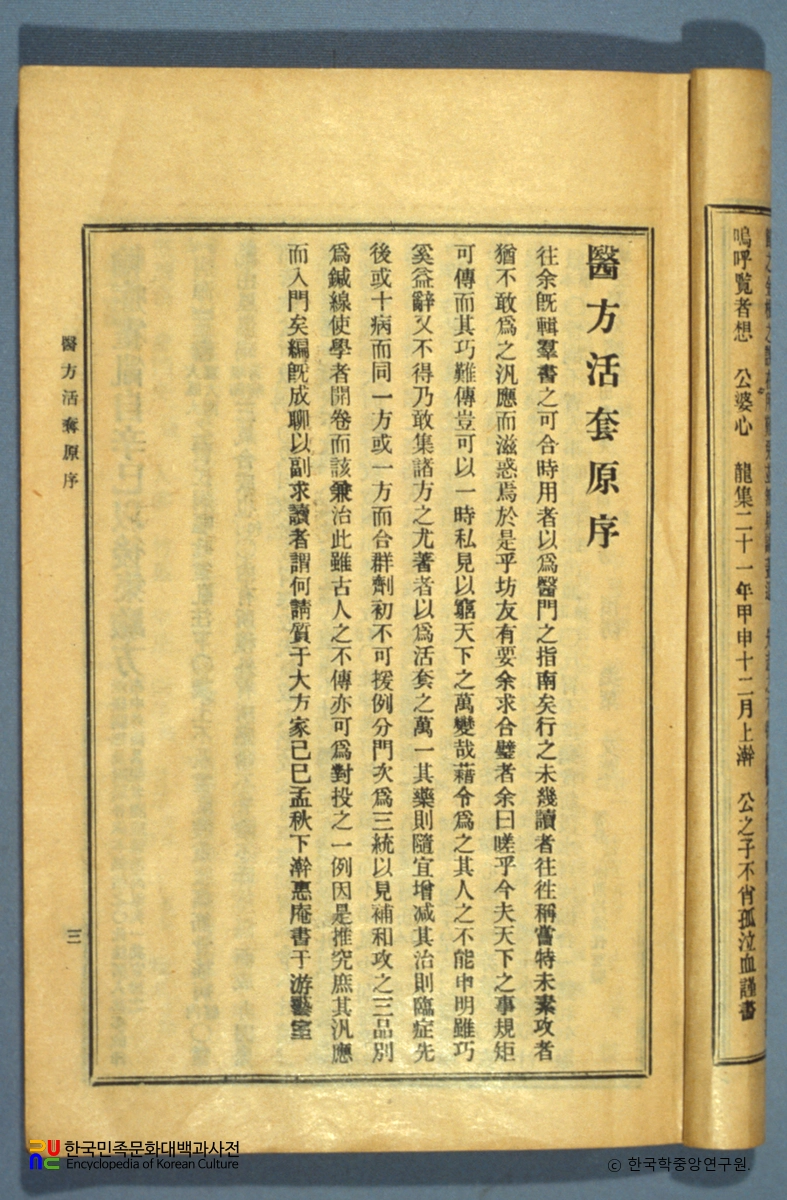 嗚呼覧者想　公婆心　龍集二十一年甲申十二月上澣　公之子不肖孤泣血謹書
醫方活套原序
往余旣輯羣書之可合時用者以爲醫門之指南矣行之未幾讀者往往稱嘗特未素攻者
猶不敢爲之汎應而滋惑焉於是乎坊友有要余求合璧者余曰嗟乎今夫天下之事規矩
可傳而其巧難傳豈可以一時私見以窮天下之萬變哉藉令爲之其人之不能申明雖巧
奚益辭又不得乃敢集諸方之尤著者以爲活套之萬一其藥則隨宜增減其治則臨症先
後或十病而同一方或一方而合群劑初不可援例分門次爲三統以見補和攻之三品別
爲鍼線使學者開卷而該兼治此雖古人之不傳亦可爲對投之一例因是推究庶其汎應
而入門矣編旣成聊以副求讀者謂何請質于大方家己巳孟秋下澣惠庵書于游藝室
醫方活套原序
三
한국민족문화대백과사전
Encyclopedia of Korean Culture
© 한국학중앙연구원.